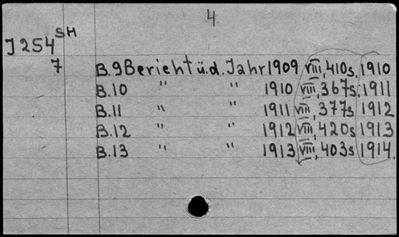 4
J 254 SH
7
B.9 Bericht ü.d. Jahr 1909 VIII, 410s, 1910
B.10 " " 1910 VIII, 367s, 1911
B.11 " " 1911 VIII, 377s 1912
B.12 " " 1912 VIII, 420s 1913
B.13 " " 1913 VIII, 403s 1914.